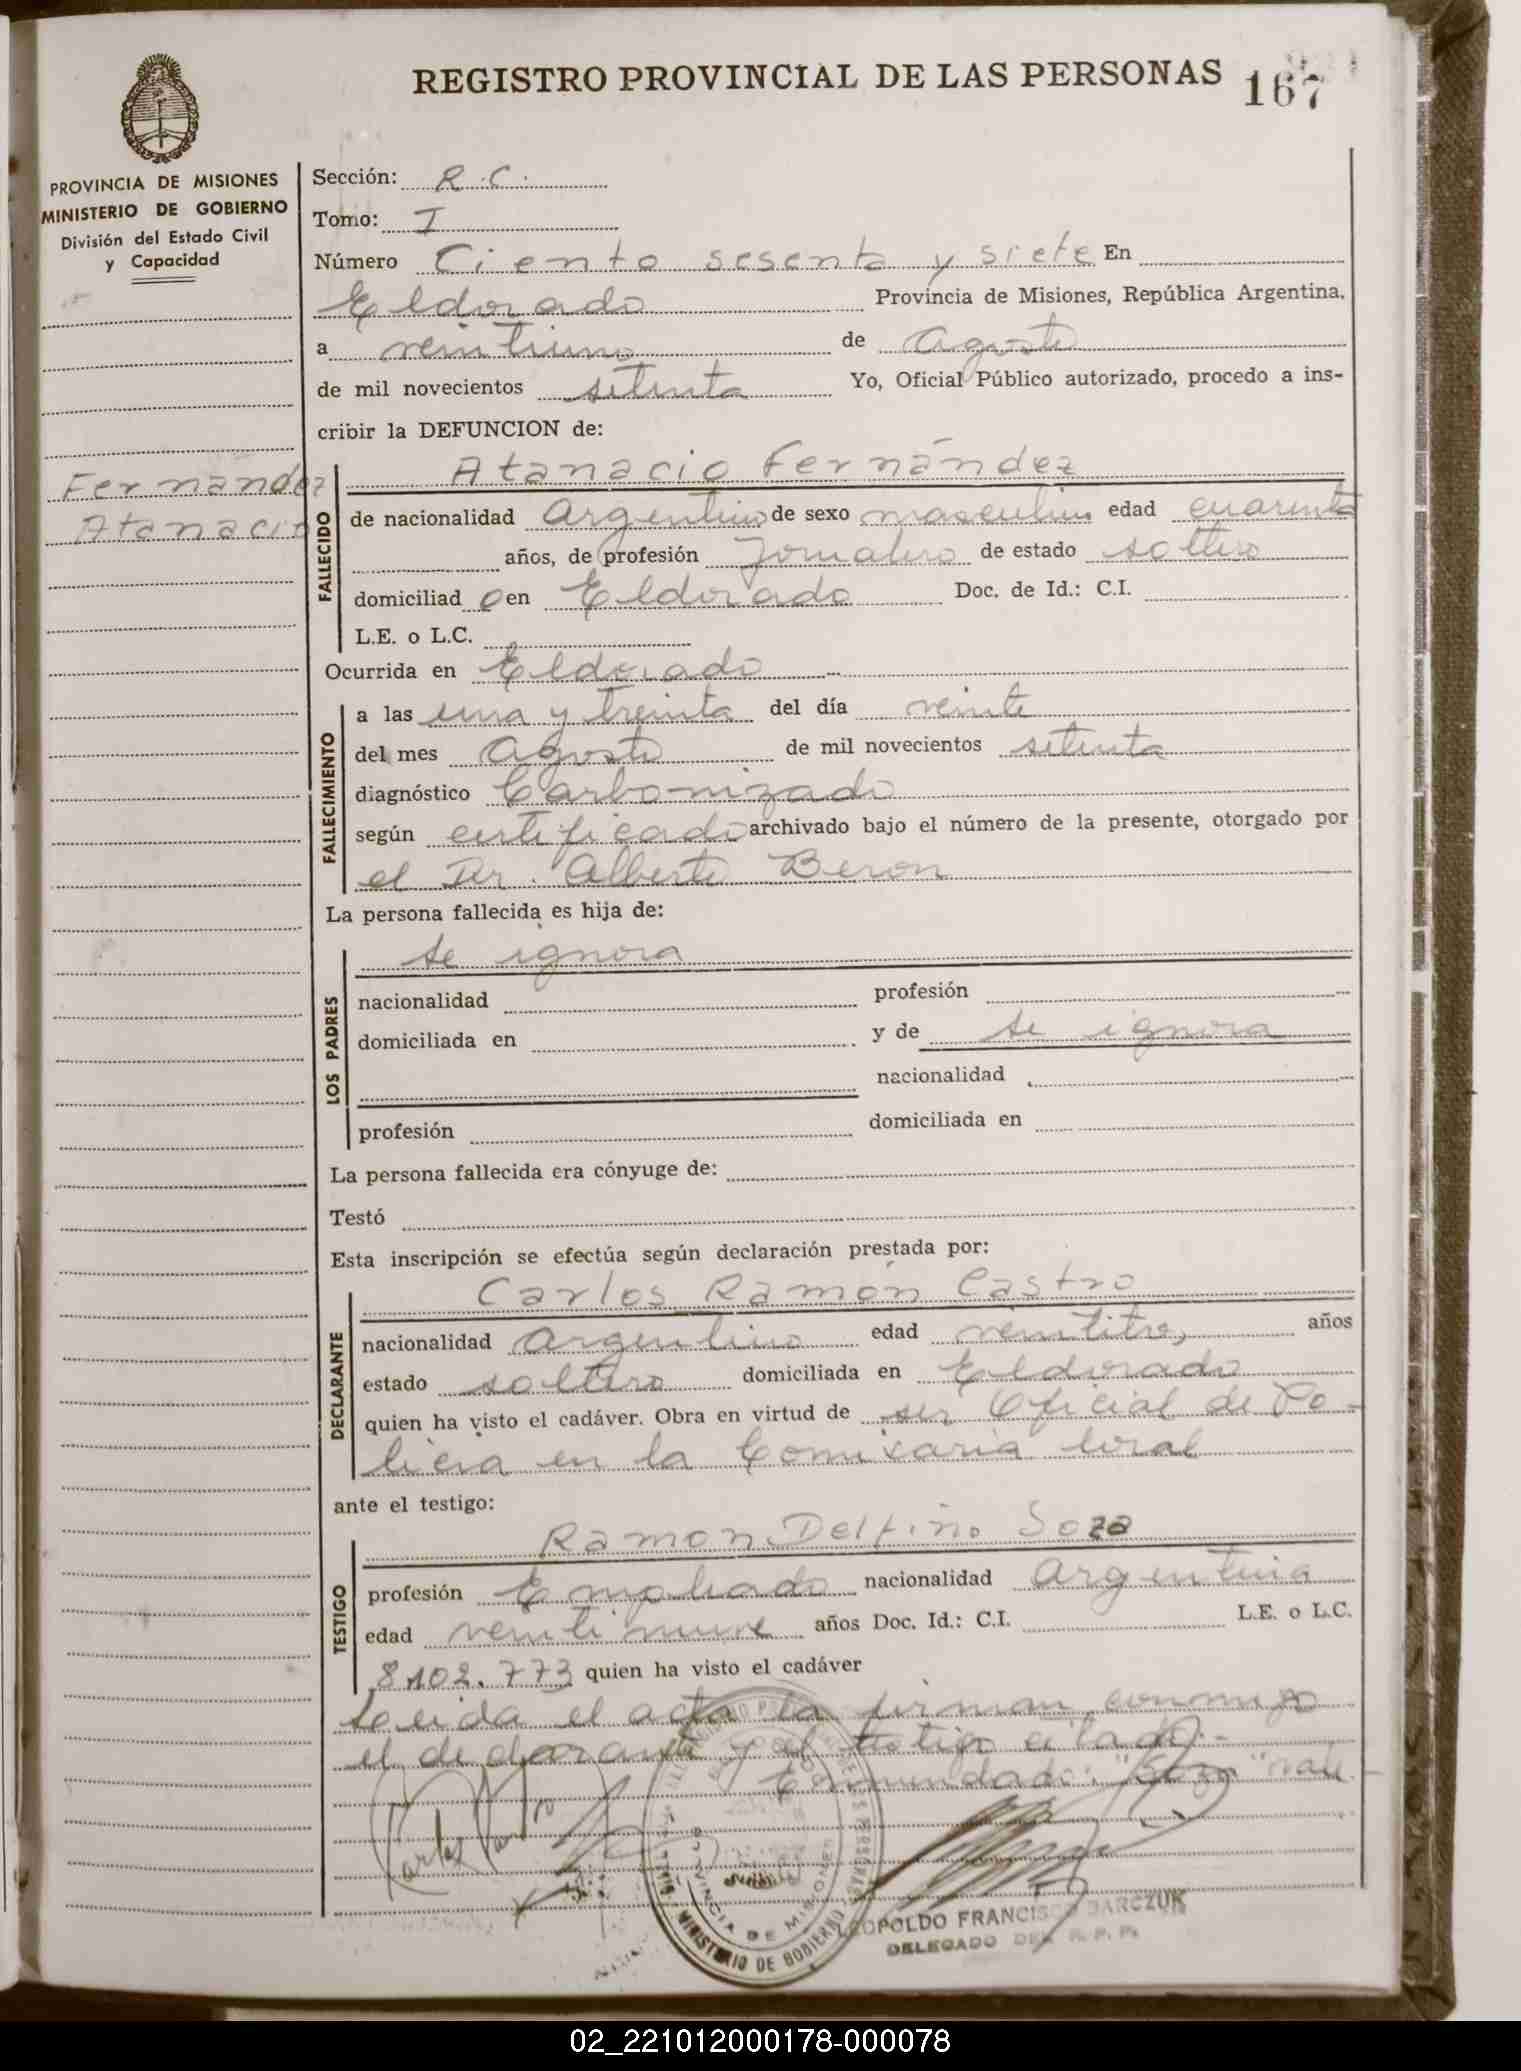 REGISTRO PROVINCIAL DE LAS PERSONAS 167
PROVINCIA DE MISIONES
MINISTERIO DE GOBIERNO
División del Estado Civil
y Capacidad
Fernández
Atanacio
Sección: R.C.
Tomo: I
Número Ciento sesenta y siete En
Eldorado Provincia de Misiones, República Argentina,
a veintiuno de Agosto
de mil novecientos setenta Yo, Oficial Público autorizado, procedo a ins-
cribir la DEFUNCION de:
FALLECIDO
Atanacio Fernández
de nacionalidad Argentino de sexo masculino edad cuarenta
años, de profesión Jornalero de estado soltero
domiciliad o en Eldorado Doc. de Id.: C.I.
L.E. o L.C.
Ocurrida en Eldorado
FALLECIMIENTO
a las una y treinta del día veinte
del mes Agosto de mil novecientos setenta
diagnóstico Carbonizado
según certificado archivado bajo el número de la presente, otorgado por
el Dr. Alberto Beron
La persona fallecida es hija de:
LOS PADRES
se ignora
nacionalidad profesión
domiciliada en y de se ignora
nacionalidad
profesión domiciliada en
La persona fallecida era cónyuge de:
Testó
Esta inscripción se efectúa según declaración prestada por:
DECLARANTE
Carlos Ramón Castro
nacionalidad Argentino edad veintitres, años
estado soltero domiciliada en Eldorado
quien ha visto el cadáver. Obra en virtud de ser Oficial de Po-
licia en la Comisaria local
ante el testigo:
TESTIGO
Ramon Delfino Soza
profesión Empleado nacionalidad Argentina
edad veintinueve años Doc. Id.: C.I. L.E. o L.C.
8102.773 quien ha visto el cadáver
Leida el acta la firman conmigo
el declarante y el testigo citado.-
Enmendado: "Soza" vale-
PROVINCIA DE MISIONES
MINISTERIO DE GOBIERNO
LEOPOLDO FRANCISCO BARCZUK
DELEGADO DEL R. P. P.
02_221012000178-000078